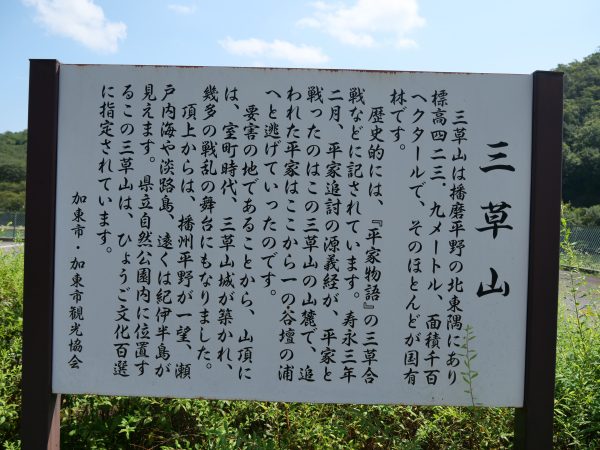 三草山
三草山は播磨平野の北東隅にあり
標高四二三．九メートル、面積千百
ヘクタールで、そのほとんどが国有
林です。
歴史的には、『平家物語』の三草合
戦などに記されています。寿永三年
二月、平家追討の源義経が、平家と
戦ったのはこの三草山の山麓で、追
われた平家はここから一の谷壇の浦
へと逃げていったのです。
要害の地であることから、山頂に
は、室町時代、三草山城が築かれ、
幾多の戦乱の舞台にもなりました。
頂上からは、播州平野が一望、瀬
戸内海や淡路島、遠くは紀伊半島が
見えます。県立自然公園内に位置す
るこの三草山は、ひょうご文化百選
に指定されています。
加東市・加東市観光協会